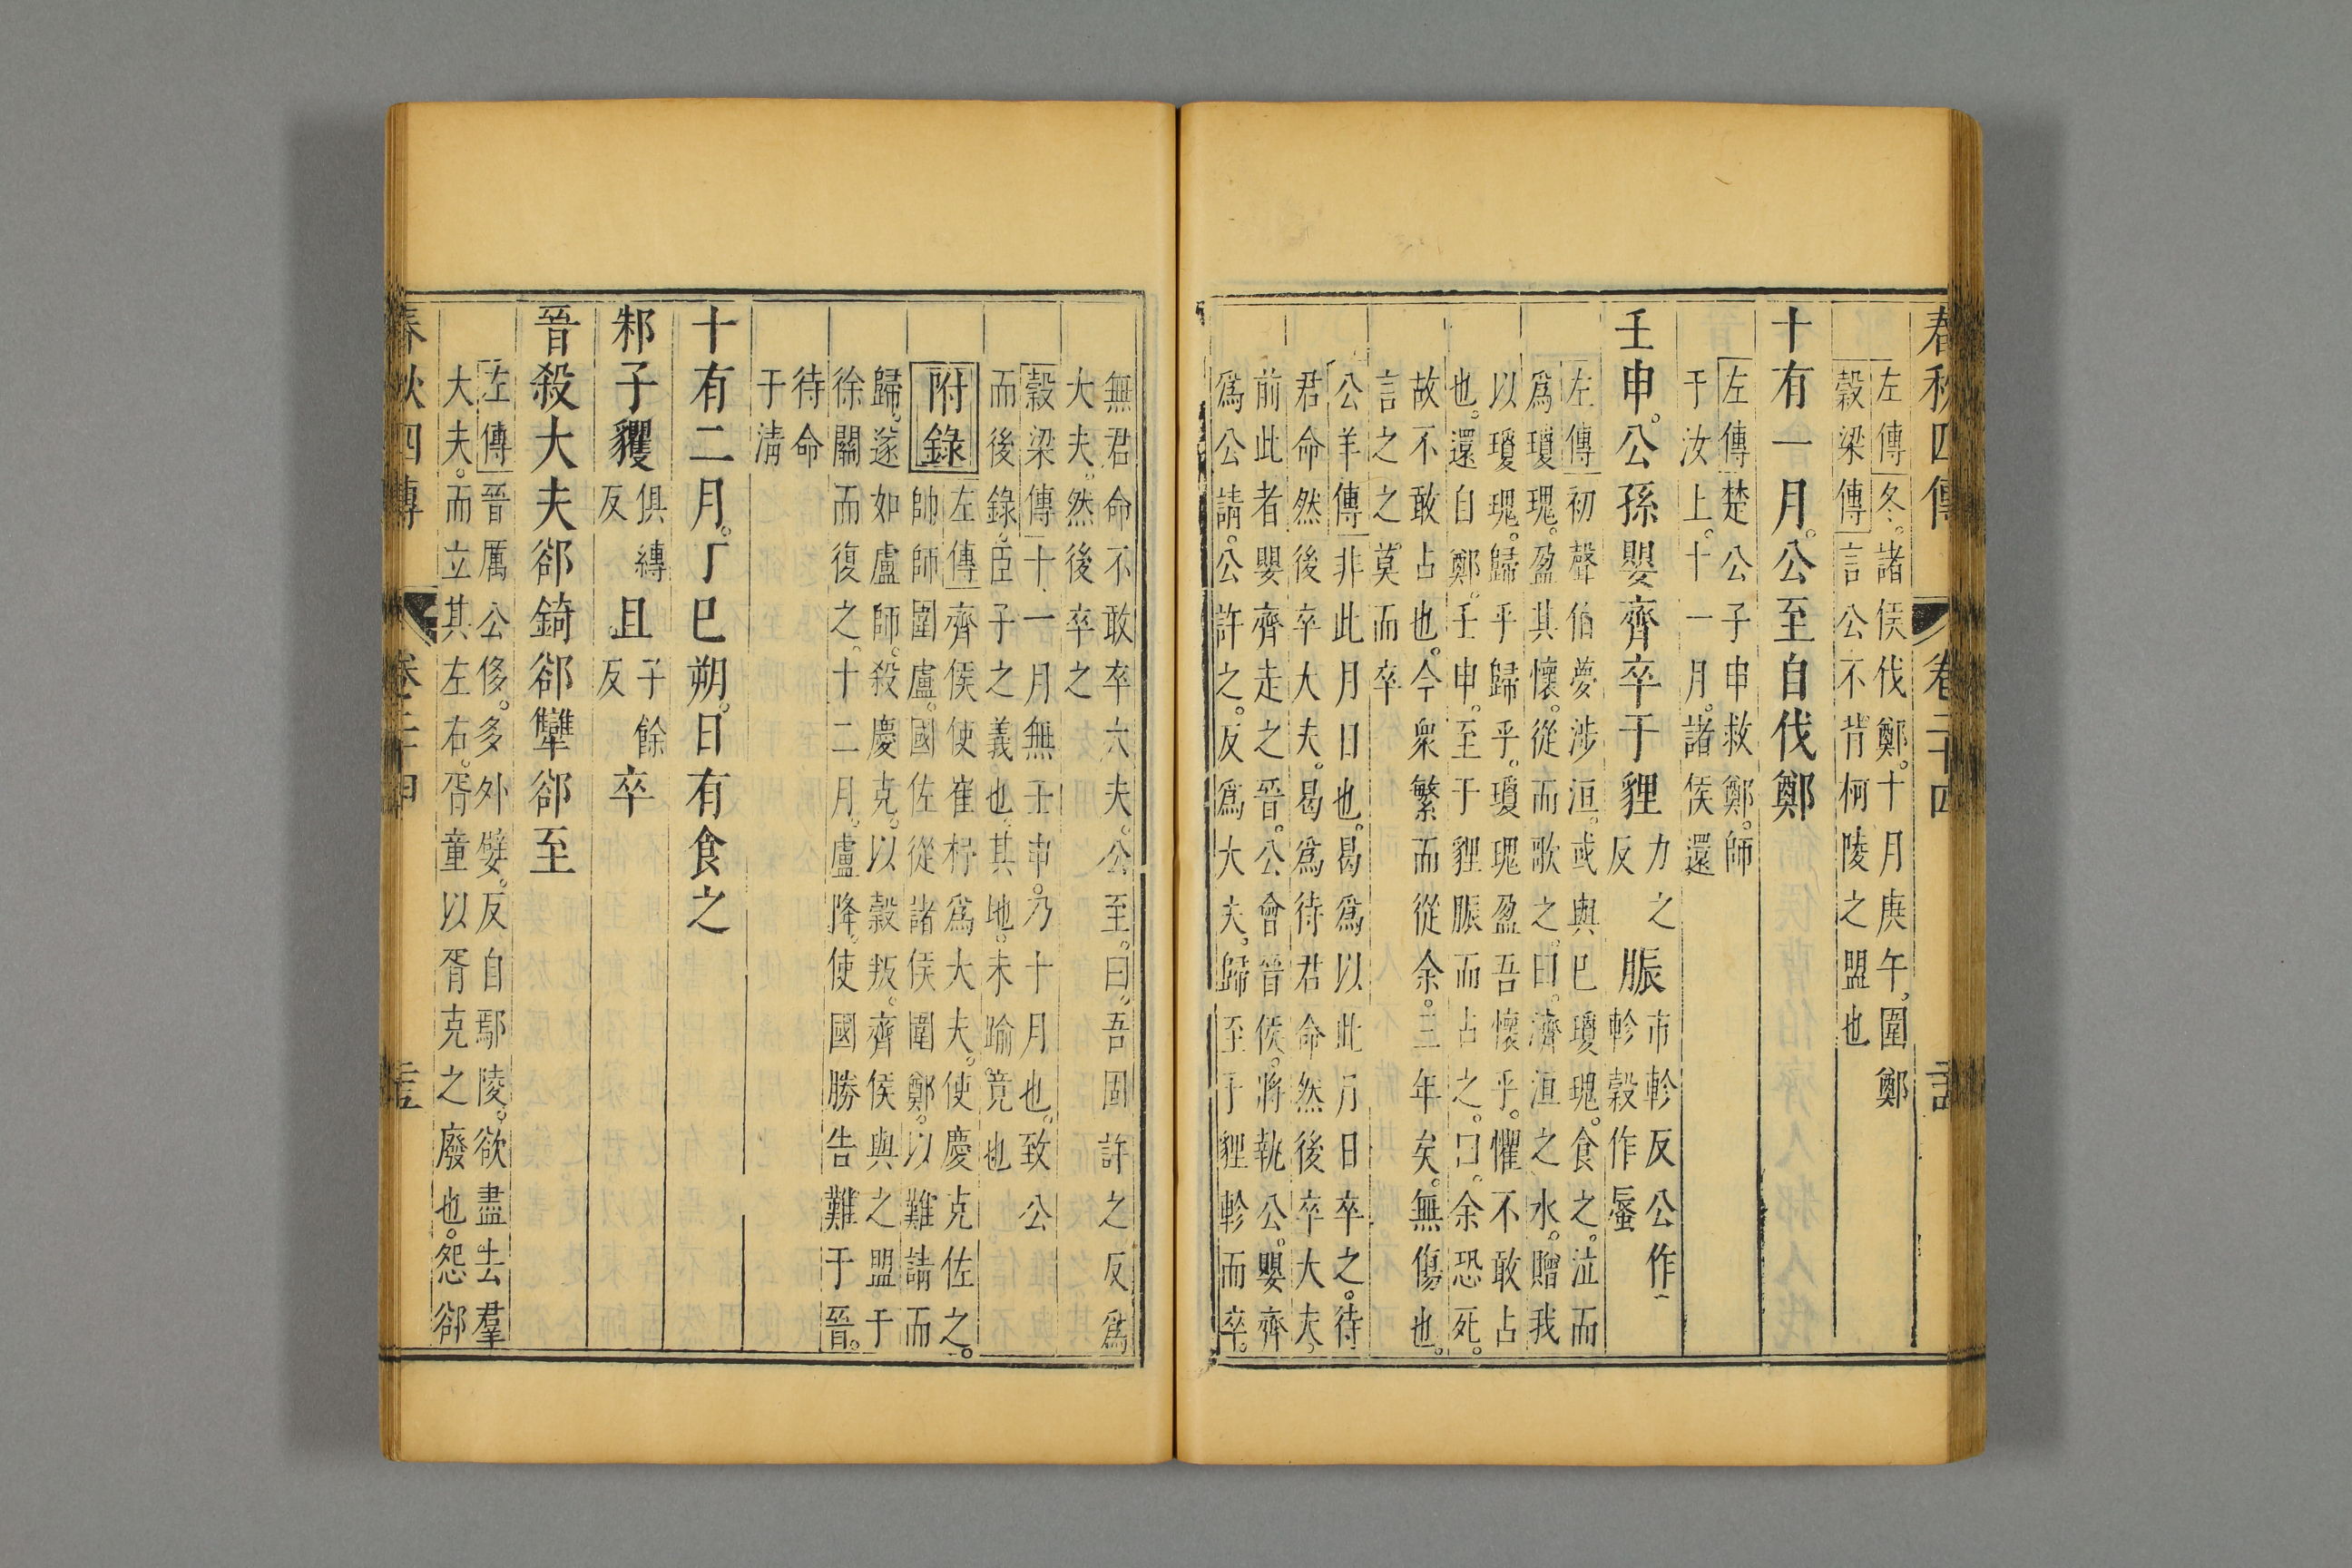 春秋四傳 卷二十四
左傳冬諸侯伐鄭。十月庚午圍鄭
穀梁傳言公不背柯陵之盟也
十有一月。公至自伐鄭
左傳楚公子申救鄭。師
于汝上。十一月。諸侯還
壬申。公孫嬰齊卒于貍力之反脤市軫反公作軫穀作蜃
左傳初聲伯夢涉洹。或與巳瓊瑰。食之。泣而
爲瓊瑰。盈其懷。從而歌之。曰。濟洹之水。贈我
以瓊瑰。歸乎歸乎。瓊瑰盈吾懷乎。懼不敢占
也。還自鄭。壬申。至于貍脤而占之。曰。余恐死。
故不敢占也。今衆繁而從余。三年矣。無傷也。
言之之莫而卒
公羊傳非此月日也。曷爲以此月日卒之。待
君命然後卒大夫。曷爲待君命然後卒大夫。
前此者嬰齊走之晉。公會晉侯。將執公。嬰齊
爲公請。公許之。反爲大夫。歸至于貍軫而卒。
無君命不敢卒大夫。公至。曰。吾固許之反爲
大夫。然後卒之
穀梁傳十一月無壬申。乃十月也。致公
而後錄。臣子之義也。其地。未踰竟也
附錄左傳齊侯使崔杼爲大夫。使慶克佐之。
帥師圍盧。國佐從諸侯圍鄭。以難請而
歸。遂如盧師。殺慶克。以穀叛。齊侯與之盟于
徐關而復之。十二月。盧降。使國勝告難于晉。
待命
于淸
十有二月。丁巳朔。日有食之
邾子貜俱縛反且子餘反卒
晉殺大夫郤錡郤犨郤至
左傳晉厲公侈。多外嬖。反自鄢陵。欲盡去羣
大夫。而立其左右。胥童以胥克之廢也。怨郤
春秋四傳